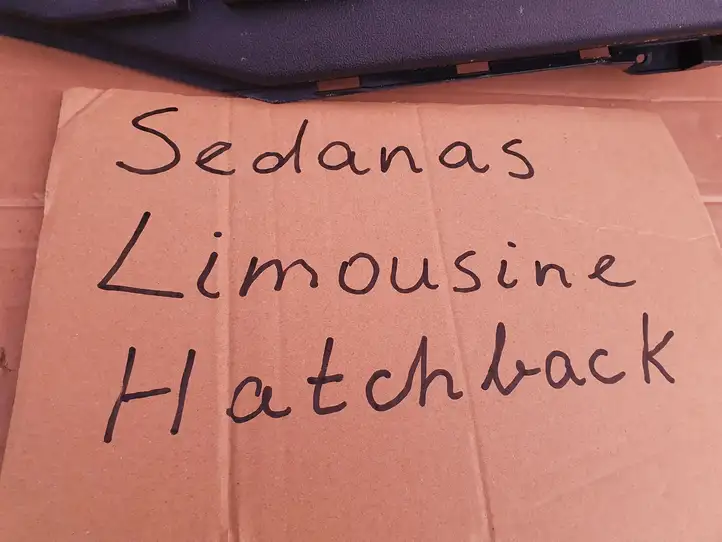 Sedanas
Limousine
Hatchback